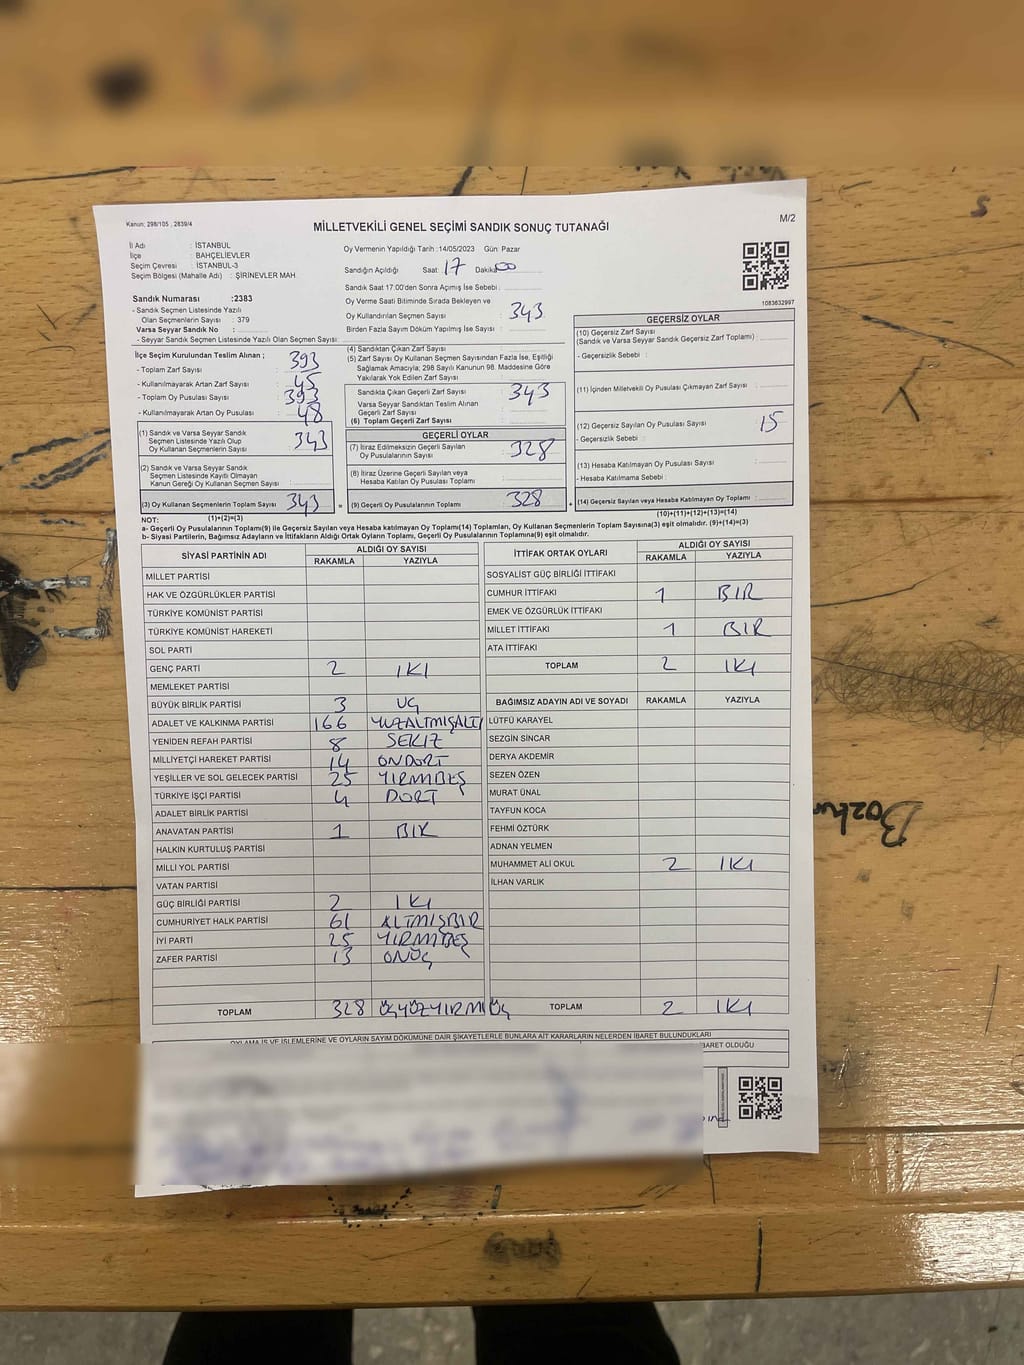 Kanun: 298/105 , 2839/4
M/2
MİLLETVEKİLİ GENEL SEÇİMİ SANDIK SONUÇ TUTANAĞI
İl Adı : İSTANBUL
İlçe : BAHÇELİEVLER
Seçim Çevresi : İSTANBUL-3
Seçim Bölgesi (Mahalle Adı) : ŞİRİNEVLER MAH
Sandık Numarası :2383
- Sandık Seçmen Listesinde Yazılı
Olan Seçmenlerin Sayısı : 379
Varsa Seyyar Sandık No :
- Seyyar Sandık Seçmen Listesinde Yazılı Olan Seçmen Sayısı:
Oy Vermenin Yapıldığı Tarih :14/05/2023 Gün: Pazar
Sandığın Açıldığı Saat: 17 Dakika: 00
Sandık Saat 17.00'den Sonra Açımış İse Sebebi :
Oy Verme Saati Bitiminde Sırada Bekleyen ve
Oy Kullandırılan Seçmen Sayısı : 343
Birden Fazla Sayım Döküm Yapılmış İse Sayısı :
1083632997
İlçe Seçim Kurulundan Teslim Alınan ;
- Toplam Zarf Sayısı : 393
- Kullanılmayarak Artan Zarf Sayısı : 45
- Toplam Oy Pusulası Sayısı : 393
- Kullanılmayarak Artan Oy Pusulası : 48
(1) Sandık ve Varsa Seyyar Sandık
Seçmen Listesinde Yazılı Olup
Oy Kullanan Seçmenlerin Sayısı : 343
(2) Sandık ve Varsa Seyyar Sandık
Seçmen Listesinde Kaydı Olmayan
Kanun Gereği Oy Kullanan Seçmenlerin Sayısı :
(3) Oy Kullanan Seçmenlerin Toplam Sayısı : 343
(1)+(2)=(3)
(4) Sandıktan Çıkan Zarf Sayısı :
(5) Zarf Sayısı Oy Kullanan Seçmen Sayısından Fazla İse, Eşitliği
Sağlamak Amacıyla; 298 Sayılı Kanunun 98. Maddesine Göre
Yakılarak Yok Edilen Zarf Sayısı :
Sandıkta Çıkan Geçerli Zarf Sayısı : 343
Varsa Seyyar Sandıktan Teslim Alınan
Geçerli Zarf Sayısı :
(6) Toplam Geçerli Zarf Sayısı :
GEÇERLİ OYLAR
(7) İtiraz Edilmeksizin Geçerli Sayılan
Oy Pusulalarının Sayısı : 328
(8) İtiraz Üzerine Geçerli Sayılan veya
Hesaba Katılan Oy Pusulası Toplamı :
= (9) Geçerli Oy Pusulalarının Toplamı : 328
GEÇERSİZ OYLAR
(10) Geçersiz Zarf Sayısı
(Sandık ve Varsa Seyyar Sandık Geçersiz Zarf Toplamı) :
- Geçersizlik Sebebi :
(11) İçinden Milletvekili Oy Pusulası Çıkmayan Zarf Sayısı :
(12) Geçersiz Sayılan Oy Pusulası Sayısı : 15
- Geçersizlik Sebebi :
(13) Hesaba Katılmayan Oy Pusulası Sayısı :
- Hesaba Katılmama Sebebi :
+ (14) Geçersiz Sayılan veya Hesaba Katılmayan Oy Toplamı :
(10)+(11)+(12)+(13)=(14)
NOT:
a- Geçerli Oy Pusulalarının Toplamı(9) ile Geçersiz Sayılan veya Hesaba katılmayan Oy Toplamı(14) Toplamları, Oy Kullanan Seçmenlerin Toplam Sayısına(3) eşit olmalıdır. (9)+(14)=(3)
b- Siyasi Partilerin, Bağımsız Adayların ve İttifakların Aldığı Ortak Oyların Toplamı, Geçerli Oy Pusulalarının Toplamına(9) eşit olmalıdır.
SİYASİ PARTİNİN ADI ALDIĞI OY SAYISI
RAKAMLA YAZIYLA
MİLLET PARTİSİ
HAK VE ÖZGÜRLÜKLER PARTİSİ
TÜRKİYE KOMÜNİST PARTİSİ
TÜRKİYE KOMÜNİST HAREKETİ
SOL PARTİ
GENÇ PARTİ 2 IKI
MEMLEKET PARTİSİ
BÜYÜK BİRLİK PARTİSİ 3 UÇ
ADALET VE KALKINMA PARTİSİ 166 YUZALTMIŞALTI
YENİDEN REFAH PARTİSİ 8 SEKIZ
MİLLİYETÇİ HAREKET PARTİSİ 14 ONDORT
YEŞİLLER VE SOL GELECEK PARTİSİ 25 YIRMIBEŞ
TÜRKİYE İŞÇİ PARTİSİ 4 DORT
ADALET BİRLİK PARTİSİ
ANAVATAN PARTİSİ 1 BIR
HALKIN KURTULUŞ PARTİSİ
MİLLİ YOL PARTİSİ
VATAN PARTİSİ
GÜÇ BİRLİĞİ PARTİSİ 2 IKI
CUMHURİYET HALK PARTİSİ 61 ALTMIŞBIR
İYİ PARTİ 25 YIRMIBEŞ
ZAFER PARTİSİ 13 ONÜÇ
TOPLAM 328 ÜÇYÜZYIRMIÜÇ
İTTİFAK ORTAK OYLARI ALDIĞI OY SAYISI
RAKAMLA YAZIYLA
SOSYALİST GÜÇ BİRLİĞİ İTTİFAKI
CUMHUR İTTİFAKI 1 BIR
EMEK VE ÖZGÜRLÜK İTTİFAKI
MİLLET İTTİFAKI 1 BIR
ATA İTTİFAKI
TOPLAM 2 IKI
BAĞIMSIZ ADAYIN ADI VE SOYADI RAKAMLA YAZIYLA
LÜTFÜ KARAYEL
SEZGİN SİNCAR
DERYA AKDEMİR
SEZEN ÖZEN
MURAT ÜNAL
TAYFUN KOCA
FEHMİ ÖZTÜRK
ADNAN YELMEN
MUHAMMET ALİ OKUL 2 IKI
İLHAN VARLIK
TOPLAM 2 IKI
OYLAMA İŞ VE İŞLEMLERİNE VE OYLARIN SAYIM DÖKÜMÜNE DAİR ŞİKAYETLERLE BUNLARA AİT KARARLARIN NELERDEN İBARET BULUNDUKLARI
İBARET OLDUĞU